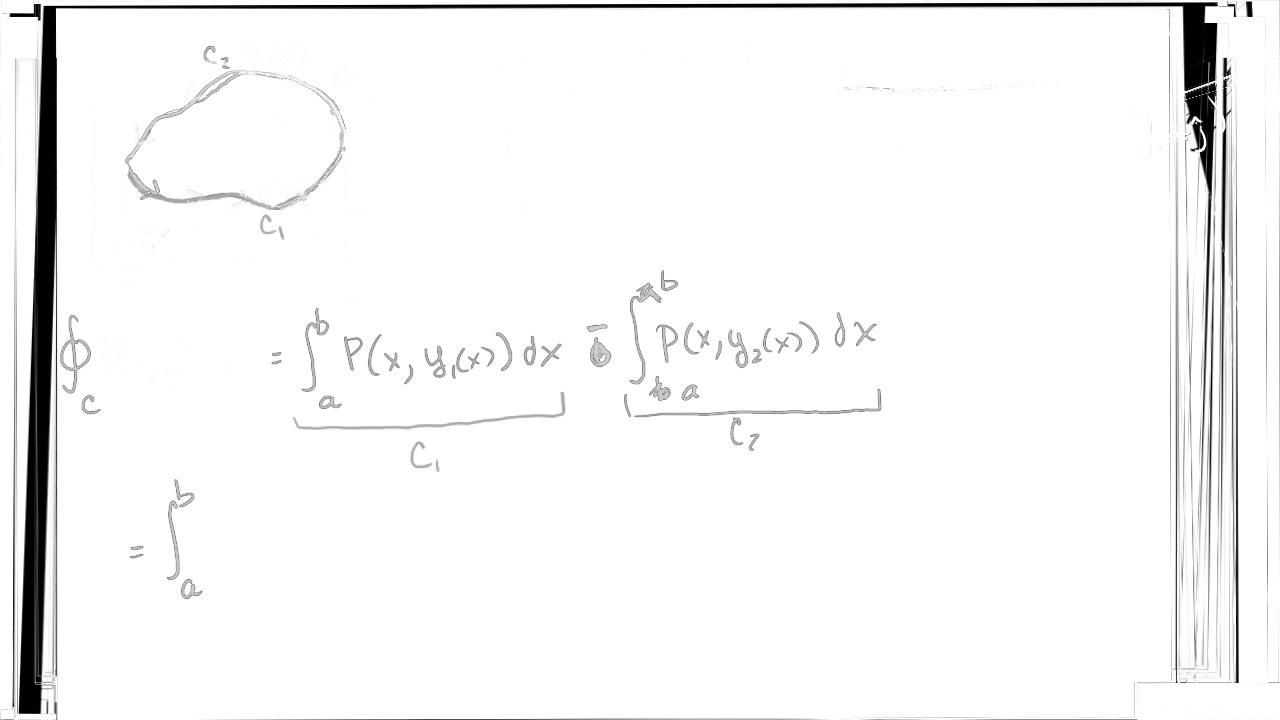 C₂
C₁
∮_C = ∫_a^b P(x, y₁(x)) dx - ∫_a^b P(x, y₂(x)) dx
C₁ C₂
= ∫_a^b